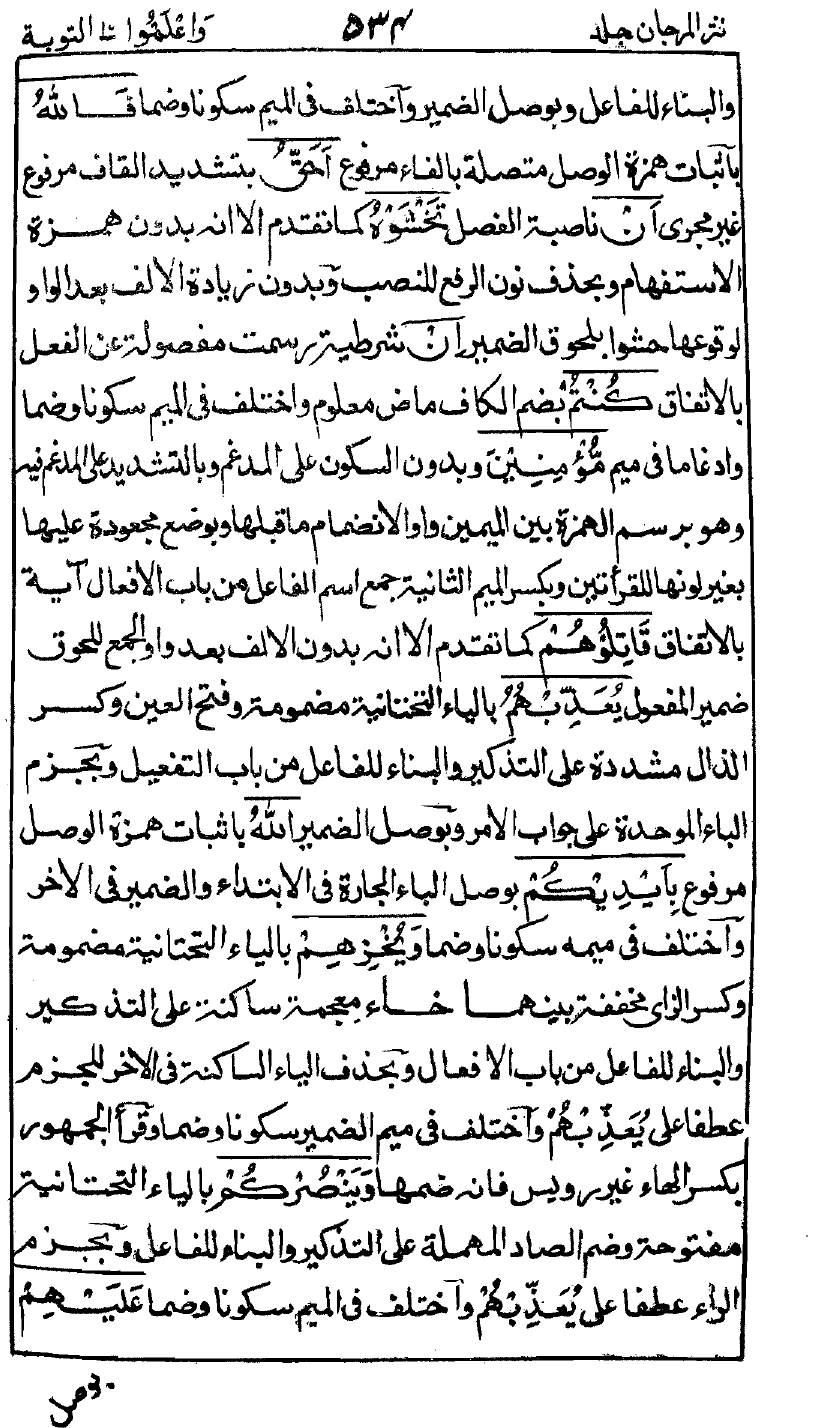 نثر المرجان جلد ٥٣٤ وَاعْلَمُوْا ١٠ التوبة
والبناء للفاعل وبوصل الضمير وآختلف فى الميم سكونا وضما فَاللهُ
بآثبات همزة الوصل متصلة بالفاء مرفوع اَحَقُّ بتشديد القاف مرفوع
غير مجرى اَنْ ناصبة الفصل تَخْشَوْهُ كما تقدم الا انه بدون همزة
الاستفهام وبحذف نون الرفع للنصب وَبدون زيادة الالف بعد الواو
لوقوعها حشوا بلحوق الضمير اِنْ شرطية رسمت مفصولة عن الفعل
بالاتفاق كُنْتُمْ بضم الكاف ماض معلوم واختلف فى الميم سكونا وضما
وادغاما فى ميم مُّؤْمِنِيْنَ وبدون السكون على المدغم وبالتشديد على المدغم فيه
وهو برسم الهمزة بين الميمين واوا لانضمام ما قبلها وبوضع مجعودة عليها
بغير لونها للقرأتين وبكسر الميم الثانية جمع اسم الفاعل من باب الافعال آية
بالاتفاق قَاتِلُوْهُمْ كما تقدم الا انه بدون الالف بعد واو الجمع للحوق
ضمير المفعول يُعَذِّبْهُمُ بالياء التحتانية مضمومة وفتح العين وكسر
الذال مشددة على التذكير والبناء للفاعل من باب التفعيل وَبجزم
الباء الموحدة على جواب الامر وبَوصل الضمير اللهُ باثبات همزة الوصل
مرفوع بِاَيْدِيْكُمْ بوصل الباء الجارة فى الابتداء والضمير فى الاخر
وَآختلف فى ميمه سكونا وضما وَيُخْزِهِمْ بالياء التحتانية مضمومة
وكسر الزاى مخففة بينهما خاء معجمة ساكنة على التذكير
والبناء للفاعل من باب الافعال وبَحذف الياء الساكنة فى الاخر للجزم
عطفا على يُعَذِّبْهُمْ وَآختلف فى ميم الضمير سكونا وضما وقرأ الجمهور
بكسر الهاء غير رويس فانه ضمها وَيَنْصُرْكُمْ بالياء التحتانية
مفتوحة وضم الصاد المهملة على التذكير والبناء للفاعل وَبجزم
الراء عطفا على يُعَذِّبْهُمْ وَآختلف فى الميم سكونا وضما عَلَيْهِمْ
بوصل